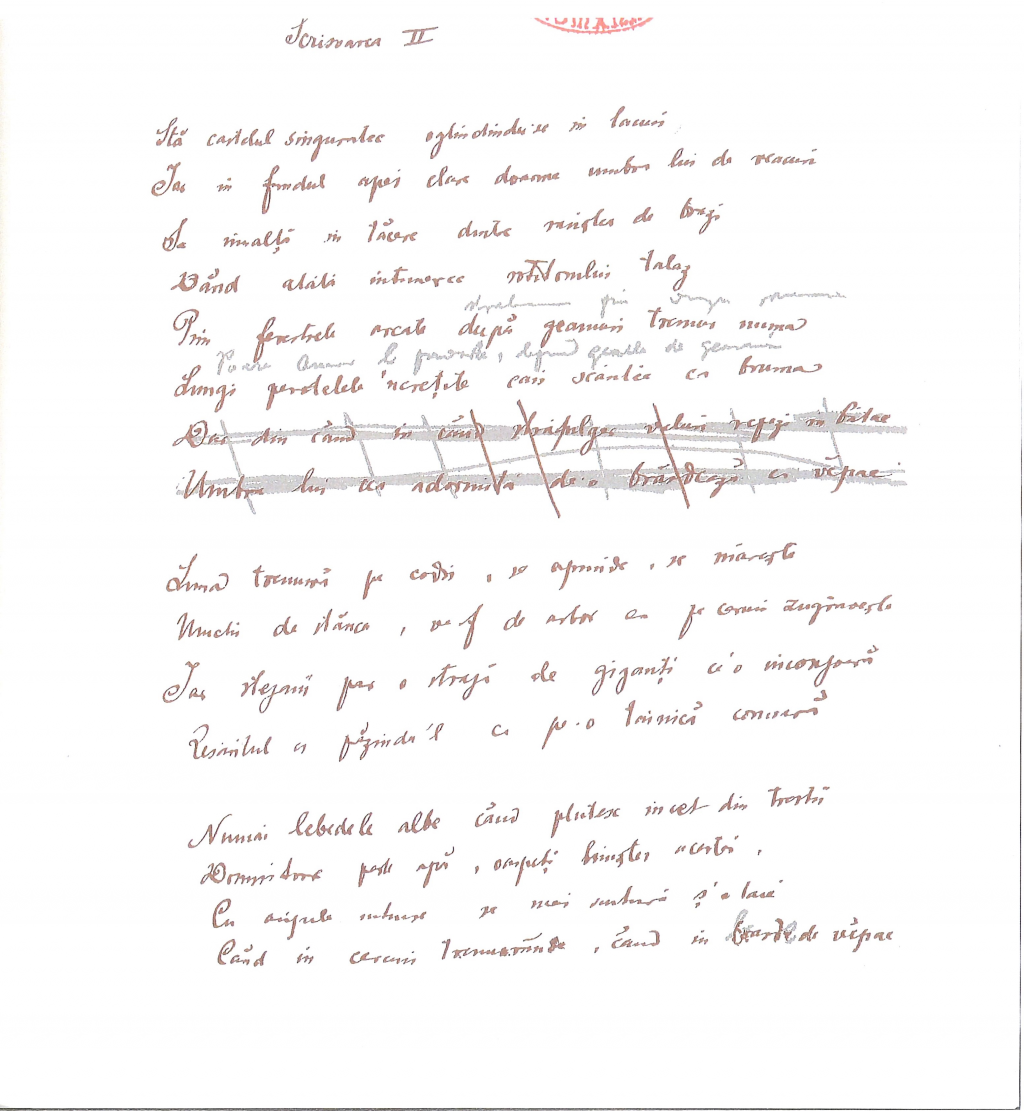 Scrisoarea II
Stă castelul singuratec oglindindu-se in lacuri
Iar in fundul apei clare doarme umbra lui de veacuri
Se innalță in tăcere dintre rariștea de brazi
Dând atâta intunerec rotitorului talaz
prin
Prin ferestrele arcate după geamuri tremur numa
de geamuri
Lungi perdelele încrețite cari scânteie ca bruma
Dar din când in când in bătae
Umbra lui cea adormită de-o brăzdează ca văpae
Luna tremură pe codri, se aprinde, se mărește
Muchi de stânca, verf de arbor ea pe ceruri zugrăvește
Iar stejarii par o strajă de giganți ce-o inconjoară
Resăritul ei păzindu'l ca pe-o tainică comoară
Numai lebedele albe când plutesc incet din trestii
Domnitoare peste apă, oaspeți liniștei acestei,
Cu aripele intinse se mai scutură ș'o taie
Când in cercuri tremurânde, când in brazde de văpae